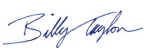 Billy Taylor